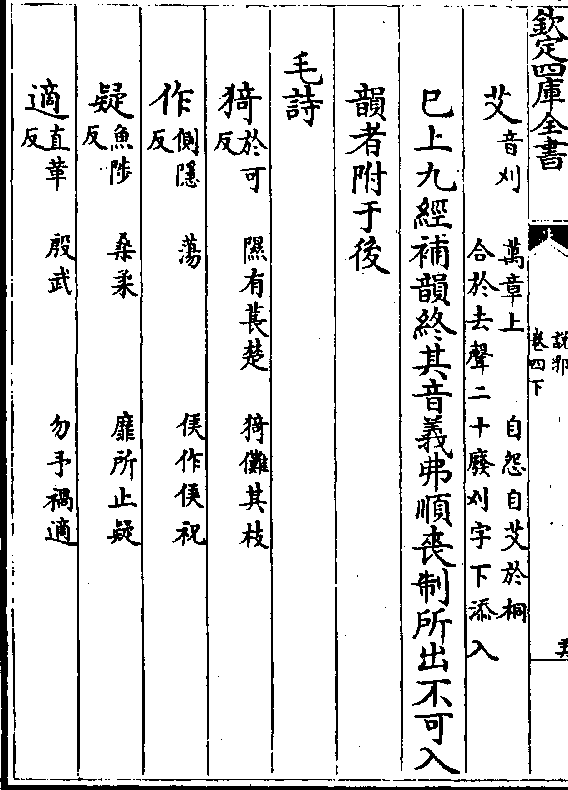 欽定四庫全書
說郛
卷四下
艾 音刈 萬章上 自怨自艾於桐
合於去聲二十廢刈字下添入
已上九經補韻終其音義弗順喪制所出不可入
韻者附于後
毛詩
猗 於可反 隰有萇楚 猗儺其枝
作 側隱反 蕩 侯作侯祝
疑 魚陟反 桑柔 靡所止疑
適 直革反 殷武 勿予禍適